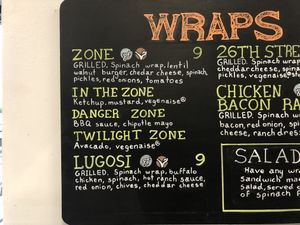 WRAPS
ZONE 9
GRILLED. Spinach wrap, lentil
walnut burger, chedar cheese, spinach,
pickles, red onions, tomatoes
IN THE ZONE
Ketchup, mustard, vegenaise®
DANGER ZONE
BBQ sauce, chipotle mayo
TWILIGHT ZONE
Avocado, vegenaise®
LUGOSI 9
GRILLED. Spinach wrap, buffalo
chicken, spinach, hot ranch sauce,
red onion, chives, cheddar cheese
26TH STRE
GRILLED. Spinach wrap,
cheddar cheese, spinach
pickles, vegenaise®
CHICKEN
BACON RA
GRILLED. Spinach
bacon, red onion, sp
cheese, ranch dress
SALAD
Have any wra
sandwich mad
salad, served o
of spinach f